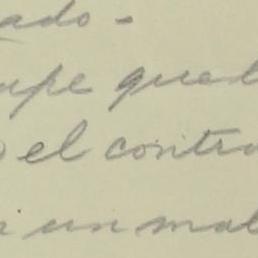 ado -
upe que
el contra
un mal